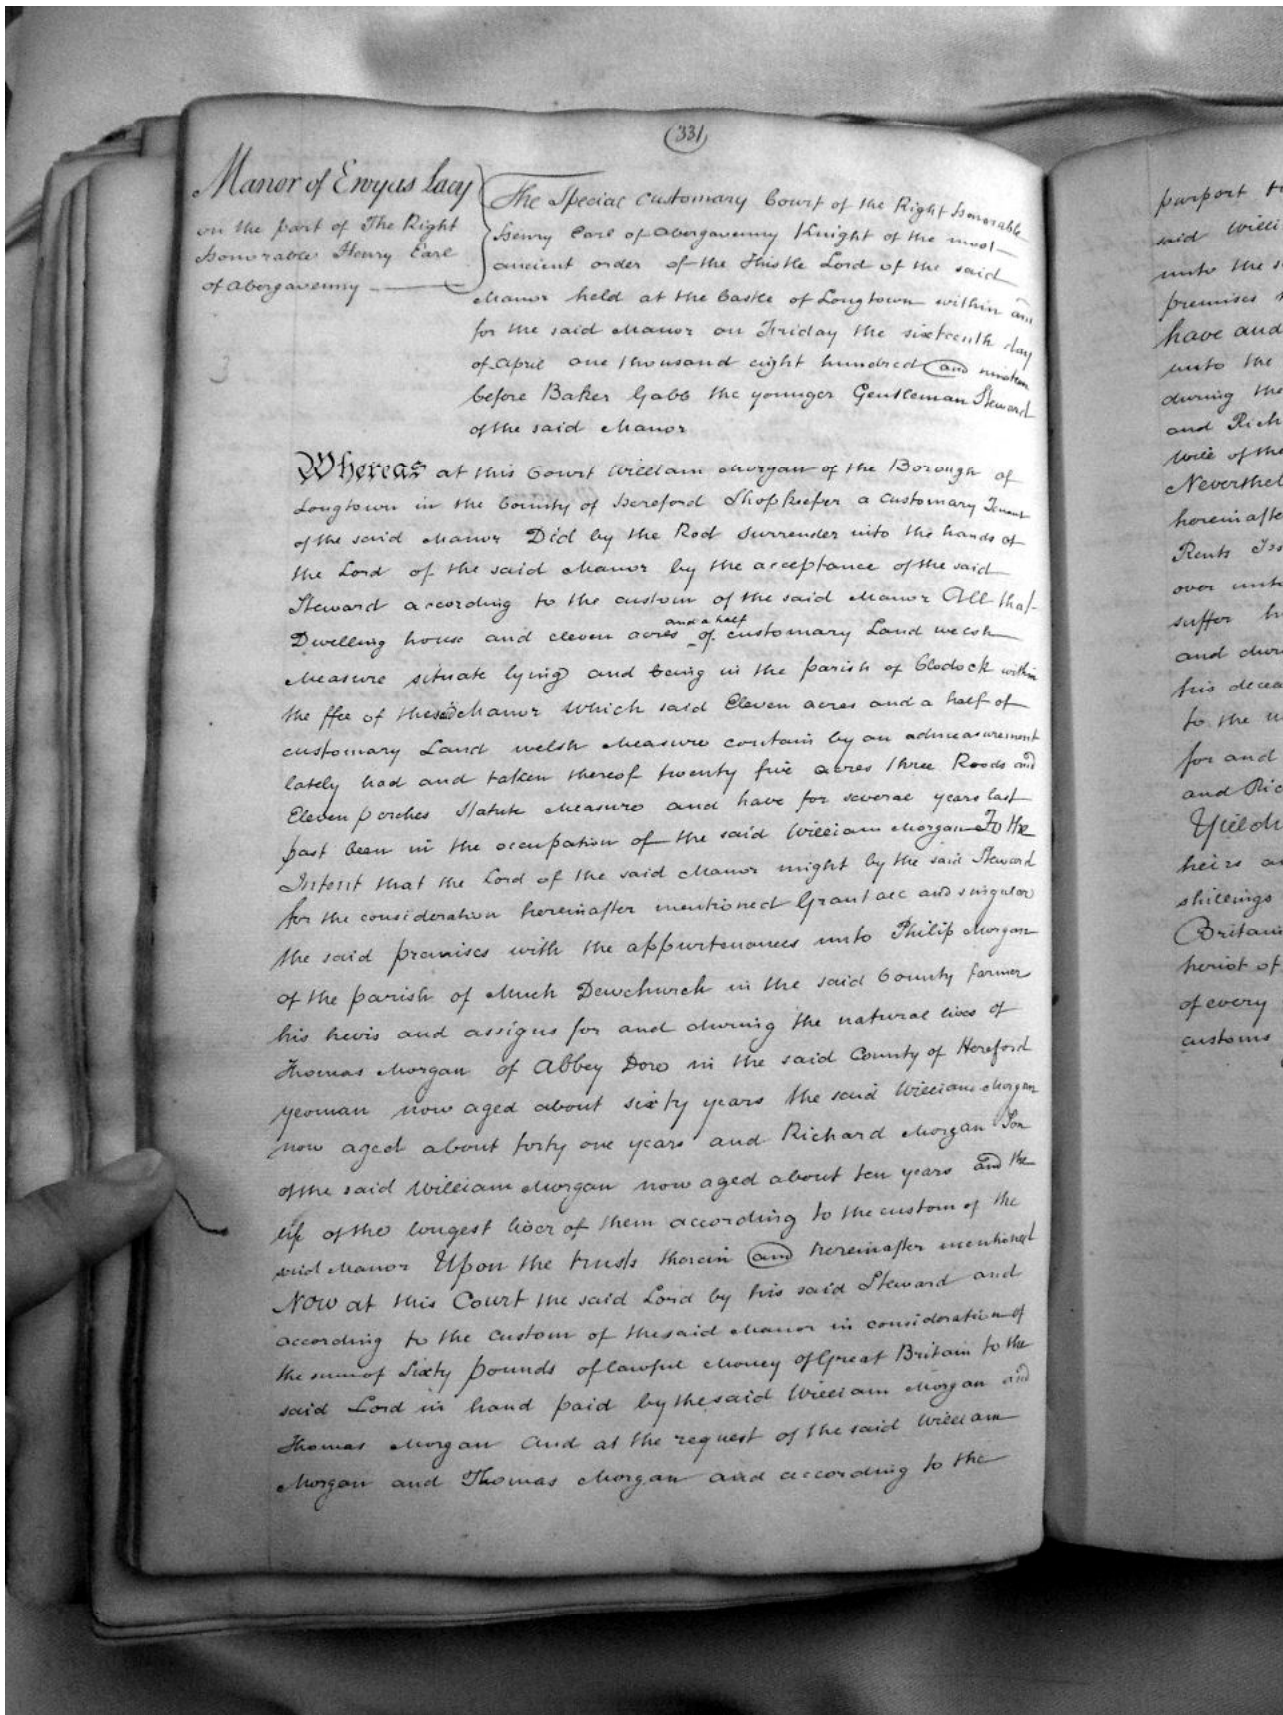 (331)
Manor of Ewyas Lacy
on the part of The Right
Honorable Henry Earl
of Abergavenny
The Special Customary Court of the Right Honorable
Henry Earl of Abergavenny Knight of the most
ancient order of the Thistle Lord of the said
Manor held at the Castle of Longtown within and
for the said Manor on Friday the sixteenth day
of April one thousand eight hundred and nineteen
before Baker Gabb the younger Gentleman Steward
of the said Manor
3
Whereas at this Court William Morgan of the Borough of
Longtown in the County of Hereford Shopkeeper a customary Tenant
of the said Manor Did by the Rod surrender into the hands of
the Lord of the said Manor by the acceptance of the said
Steward according to the custom of the said Manor All that
Dwelling house and eleven acres and a half of customary Land welsh
Measure situate lying and being in the parish of Clodock within
the ffee of the said Manor which said Eleven acres and a half of
customary Land welsh Measure contain by an admeasurement
lately had and taken thereof twenty five acres three Roods and
Eleven perches Statute Measure and have for several years last
past been in the occupation of the said William Morgan To the
Intent that the Lord of the said Manor might by the said Steward
for the consideration hereinafter mentioned Grant all and singular
the said premises with the appurtenances unto Philip Morgan
of the parish of Much Dewchurch in the said County farmer
his heirs and assigns for and during the natural lives of
Thomas Morgan of Abbey Dore in the said County of Hereford
yeoman now aged about sixty years the said William Morgan
now aged about forty one years and Richard Morgan Son
of the said William Morgan now aged about ten years and the
life of the longest liver of them according to the custom of the
said Manor Upon the trusts therein and hereinafter mentioned
Now at this Court the said Lord by his said Steward and
according to the custom of the said Manor in consideration of
the sum of Sixty pounds of lawful Money of Great Britain to the
said Lord in hand paid by the said William Morgan and
Thomas Morgan And at the request of the said William
Morgan and Thomas Morgan and according to the
purport
said Willi
unto the
premises
have and
unto the
during the
and Rich
will of the
Nevertheless
hereinafte
Rents Iss
over unto
suffer
and duri
his decea
to the
for and
and Ric
Yieldi
heirs an
shillings
Britain
heriot of
of every
customs